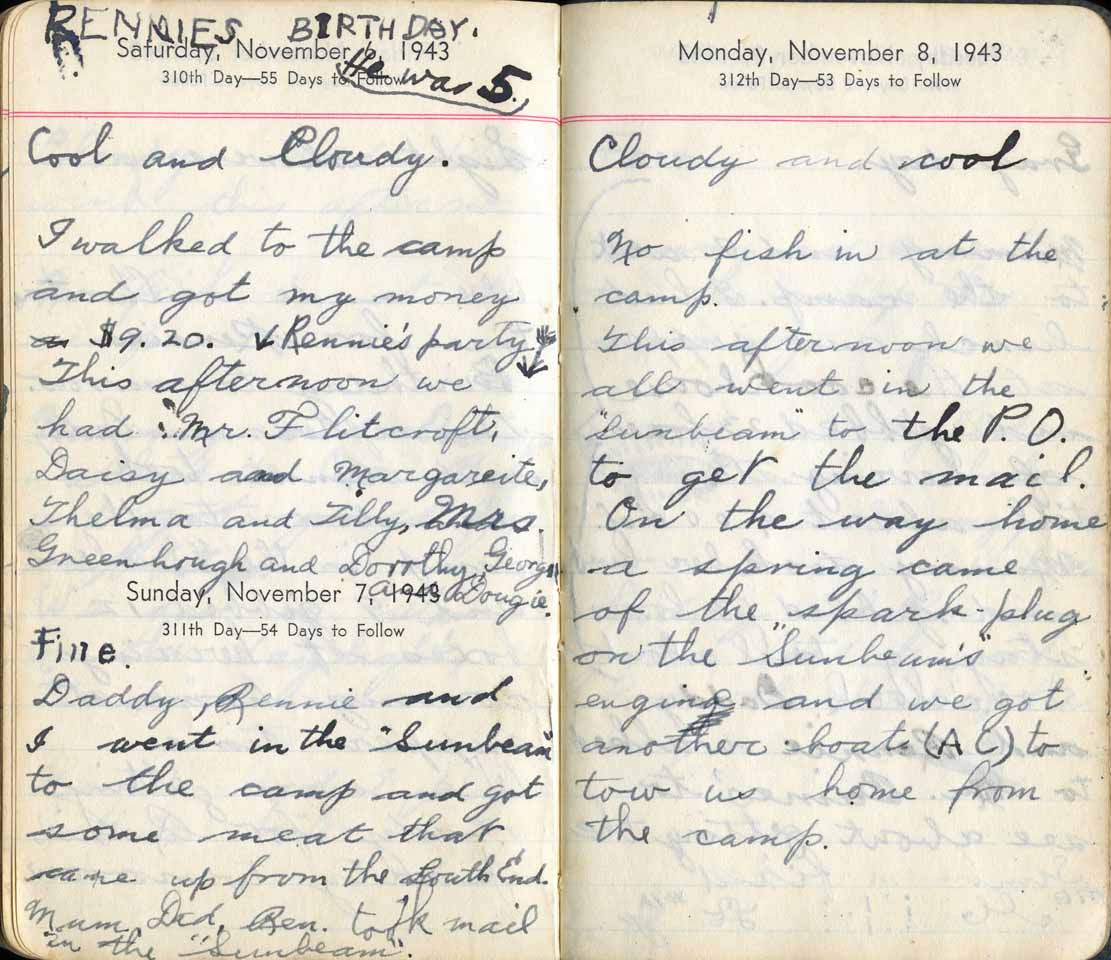 RENNIES BIRTHDAY.
Saturday, November 6, 1943
310th Day—55 Days to Follow
He was 5.
Cool and Cloudy.
I walked to the camp
and got my money
$9.20. Rennie's party
This afternoon we
had : Mr. Flitcroft,
Daisy and Margareite,
Thelma and Tilly, Mrs.
Greenhough and Dorothy, George
and Dougie.
Sunday, November 7, 1943
311th Day—54 Days to Follow
Fine.
Daddy, Rennie and
I went in the "Sunbeam"
to the camp and got
some meat that
came up from the South End.
Mum, Dad, Ren. took mail
in the "Sunbeam".
Monday, November 8, 1943
312th Day—53 Days to Follow
Cloudy and cool
No fish in at the
camp.
This afternoon we
all went in the
"Sunbeam" to the P.O.
to get the mail.
On the way home
a spring came
of the spark-plug
on the "Sunbeam's"
engine and we got
another boat (A C) to
tow us home from
the camp.